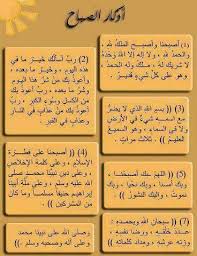 أذكار الصباح
(1) أصبحنا وأصبح الملك لله ،
والحمد لله ، ولا إله إلا الله وحده
لا شريك له ، له الملك وله الحمد
وهو على كل شيء قدير ))
(2) رب أسألك خير ما في
هذه اليوم ، وخير ما بعده ،
وأعوذ بك من شر هذا اليوم
وشر ما بعده ، رب وأعوذ بك
من الكسل وسوء الكبر ، رب
وأعوذ بك من عذاب في النار
وعذاب في القبر .
(3) بسم الله الذي لا يضر
مع اسمه شيء في الأرض
ولا في السماء وهو السميع
العليم ))
(4) أصبحنا على فطرة
الإسلام ، وعلى كلمة الإخلاص
، وعلى دين نبينا محمد صلى
الله عليه وسلم ، وعلى ملة أبينا
إبراهيم حنيفاً مسلماً وما كان
من المشركين )) .
(5) (( اللهم بك أصبحنا ،
وبك أمسينا ، وبك نحيا ، وبك
نموت ، وإليك النشور )) .
(7) (( سبحان الله وبحمده :
عدد خلقه ، ورضا نفسه ،
وزنة عرشه ، ومداد كلماته ))
وصلى الله على نبينا محمد
وعلى آله وصحبه وسلم .))